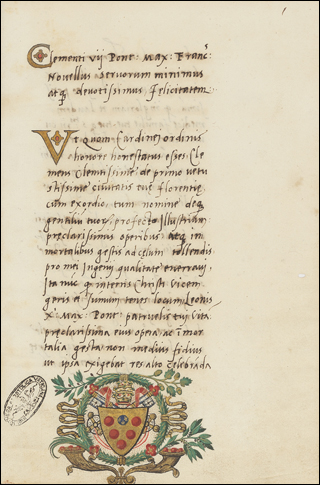 Clementi vij Pont. Max. Franc.
Novellus servorum minimus
atq devotissimus felicitatem
Ut Quom Cardinei ordinis
honore honestatus esses Cle
mens Clementissime de primo vetu
stissime civitatis tuę florentię
cum exordio, tum nomine deq
gentiliu tuor profecto Illustriam
preclarissimis operibus atq im
mortalibus gestis ad celum tollendis
pro mei Ingenij qualitate enerravi,
Ita nuc q interris Christi vicem
geris et sumum tenes locum Leonis
X. Max. Pont. patruelis tui vita
preclarissima eius opera ac imor
talia gesta non medius fidius
ut ipsa exigebat res alto celebrada